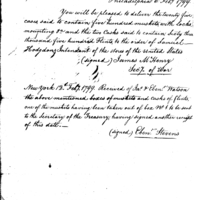 Philadelphia 6 Feby 1799
You will be pleased to deliver the twenty five
cases said to contain five hundred muskets with locks,
mounting &c and the two Casks said to contain
thousand five hundred Flints to the order of Samuel
Hodgdon, Intendant of the stores of the United States
(signed) James McHenry
Secy. of War
New York 13 Feby. 1799. Received of Jas & Eben Watson
the above mentioned boxes of muskets and casks of flints
one of the muskets having been taken out of box No 6 to be sent
to the Secretary of the Treasury having signed another receipt
of this date—
(signed) Eben Stevens